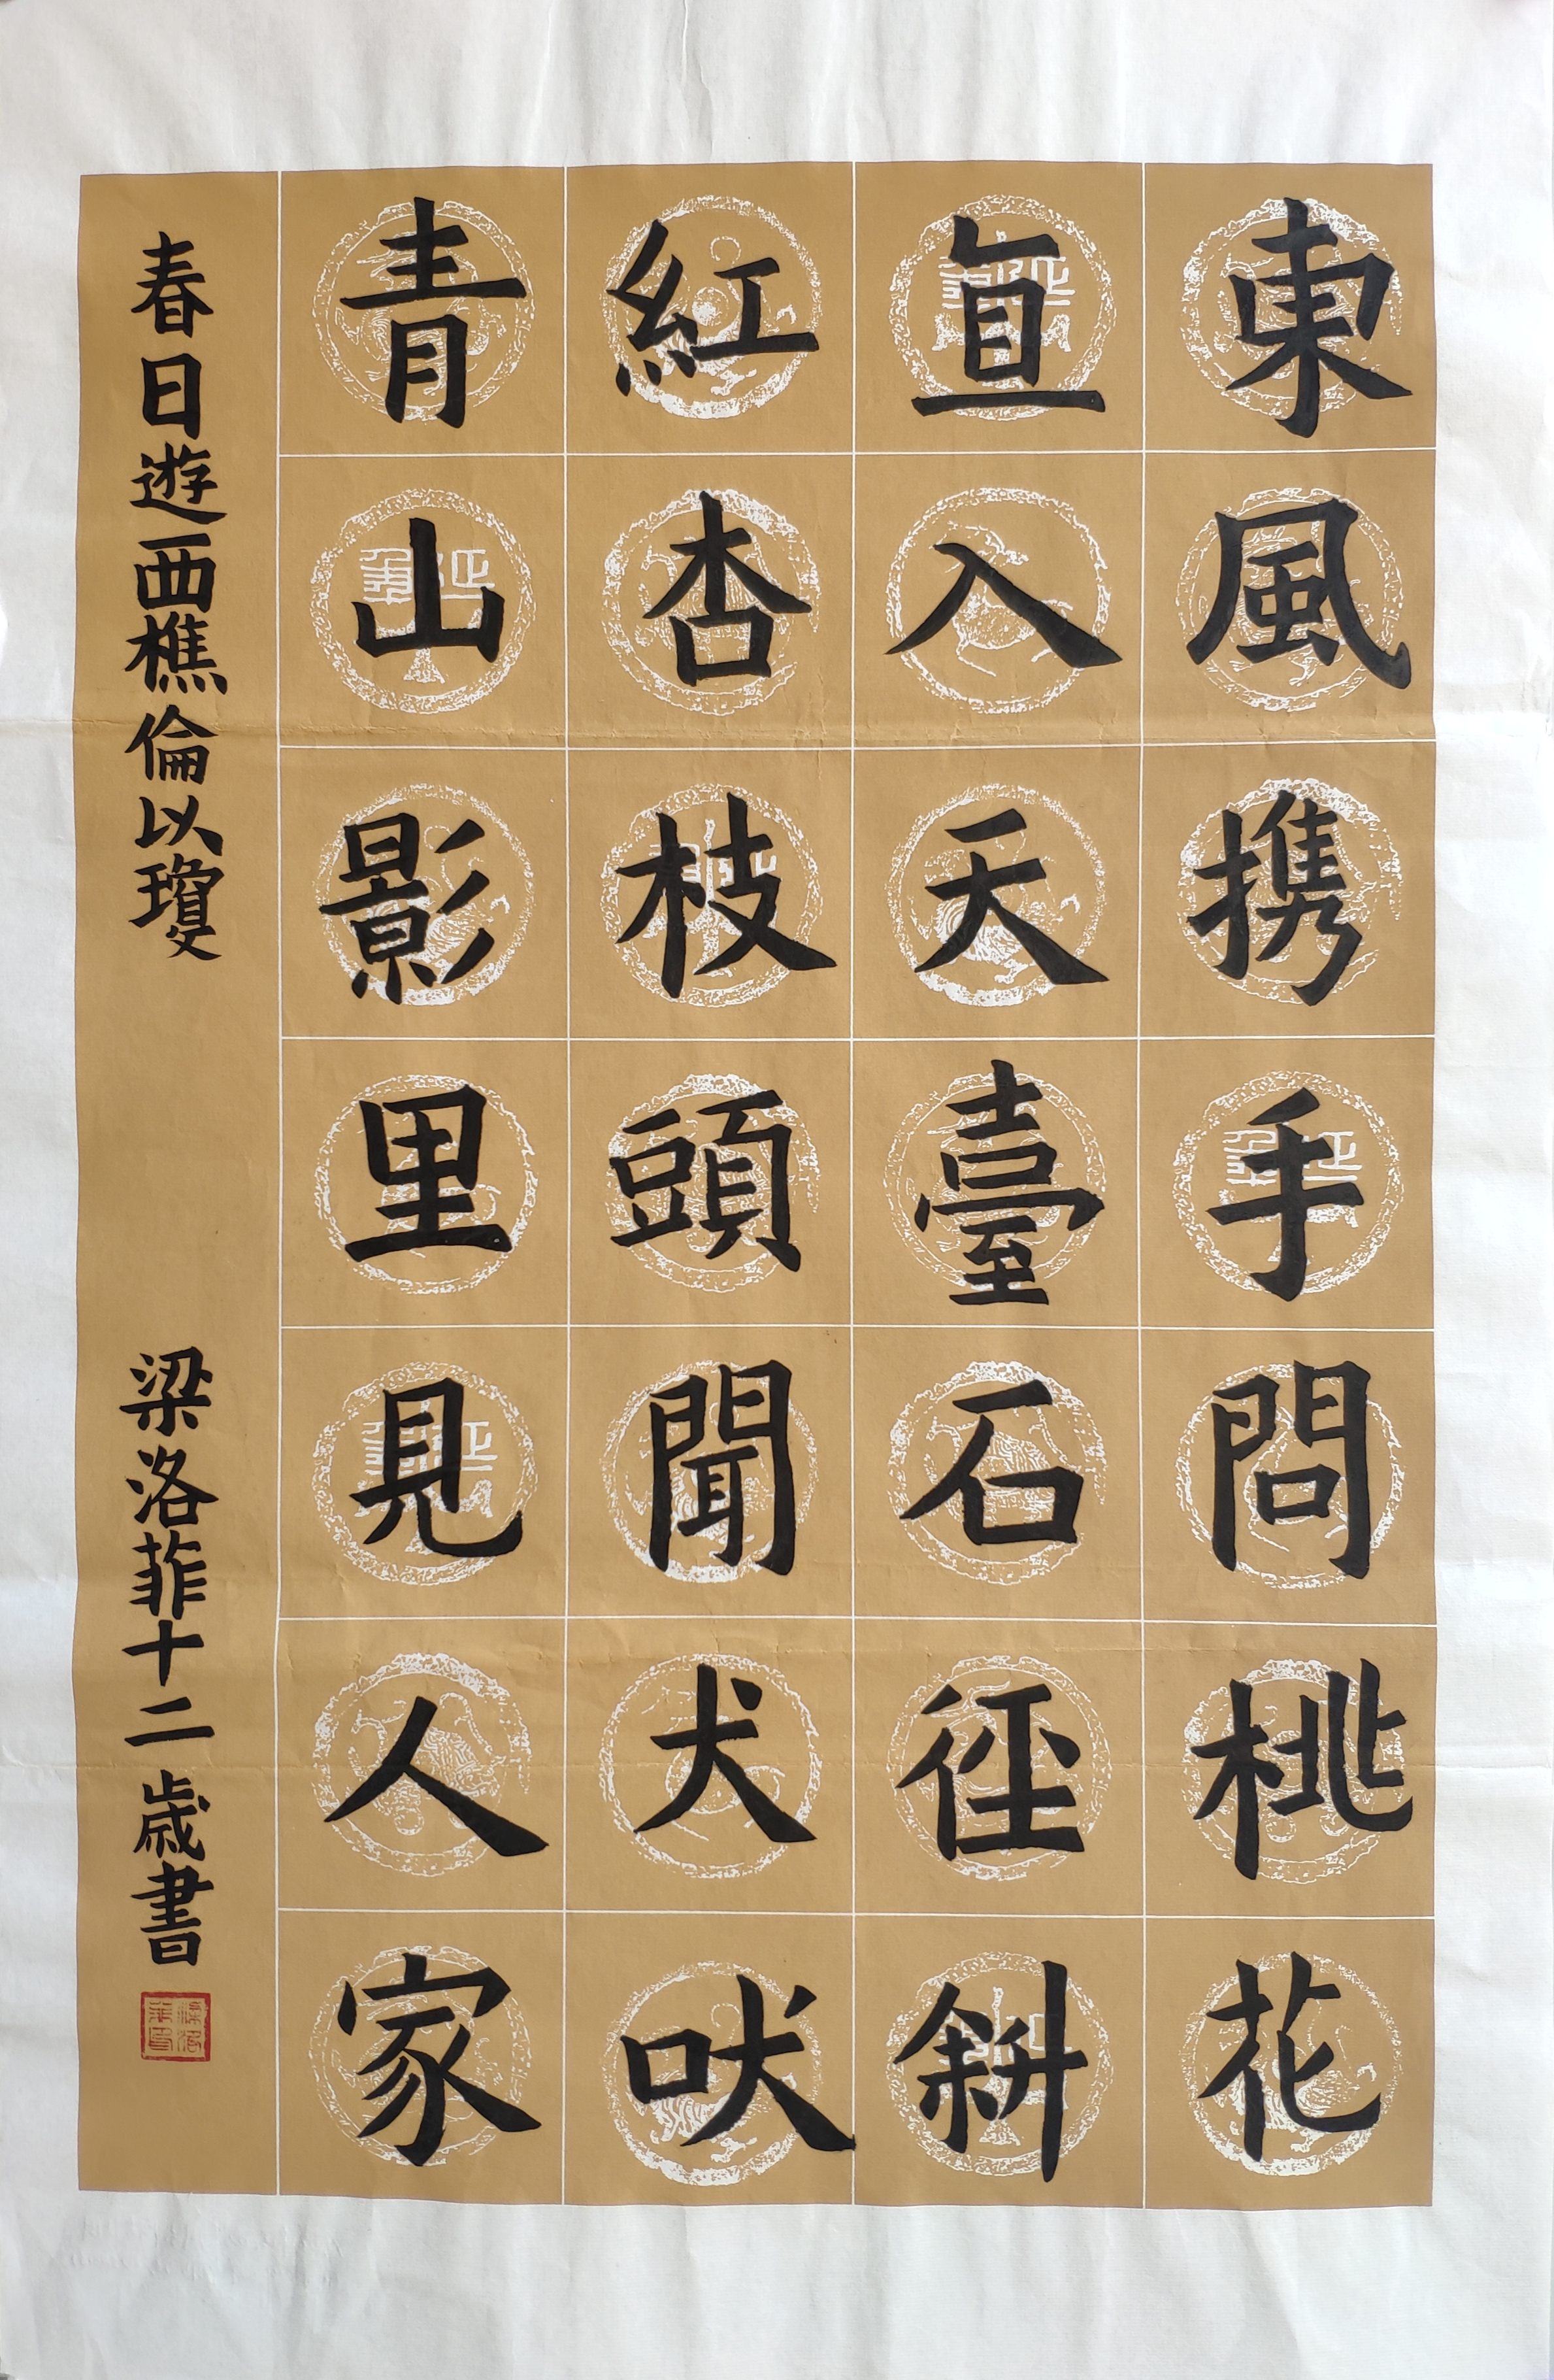 東風携手問桃花
直入天臺石徑斜
紅杏枝頭聞犬吠
青山影里見人家
春日遊西樵倫以瓊 梁洛菲十二歲書